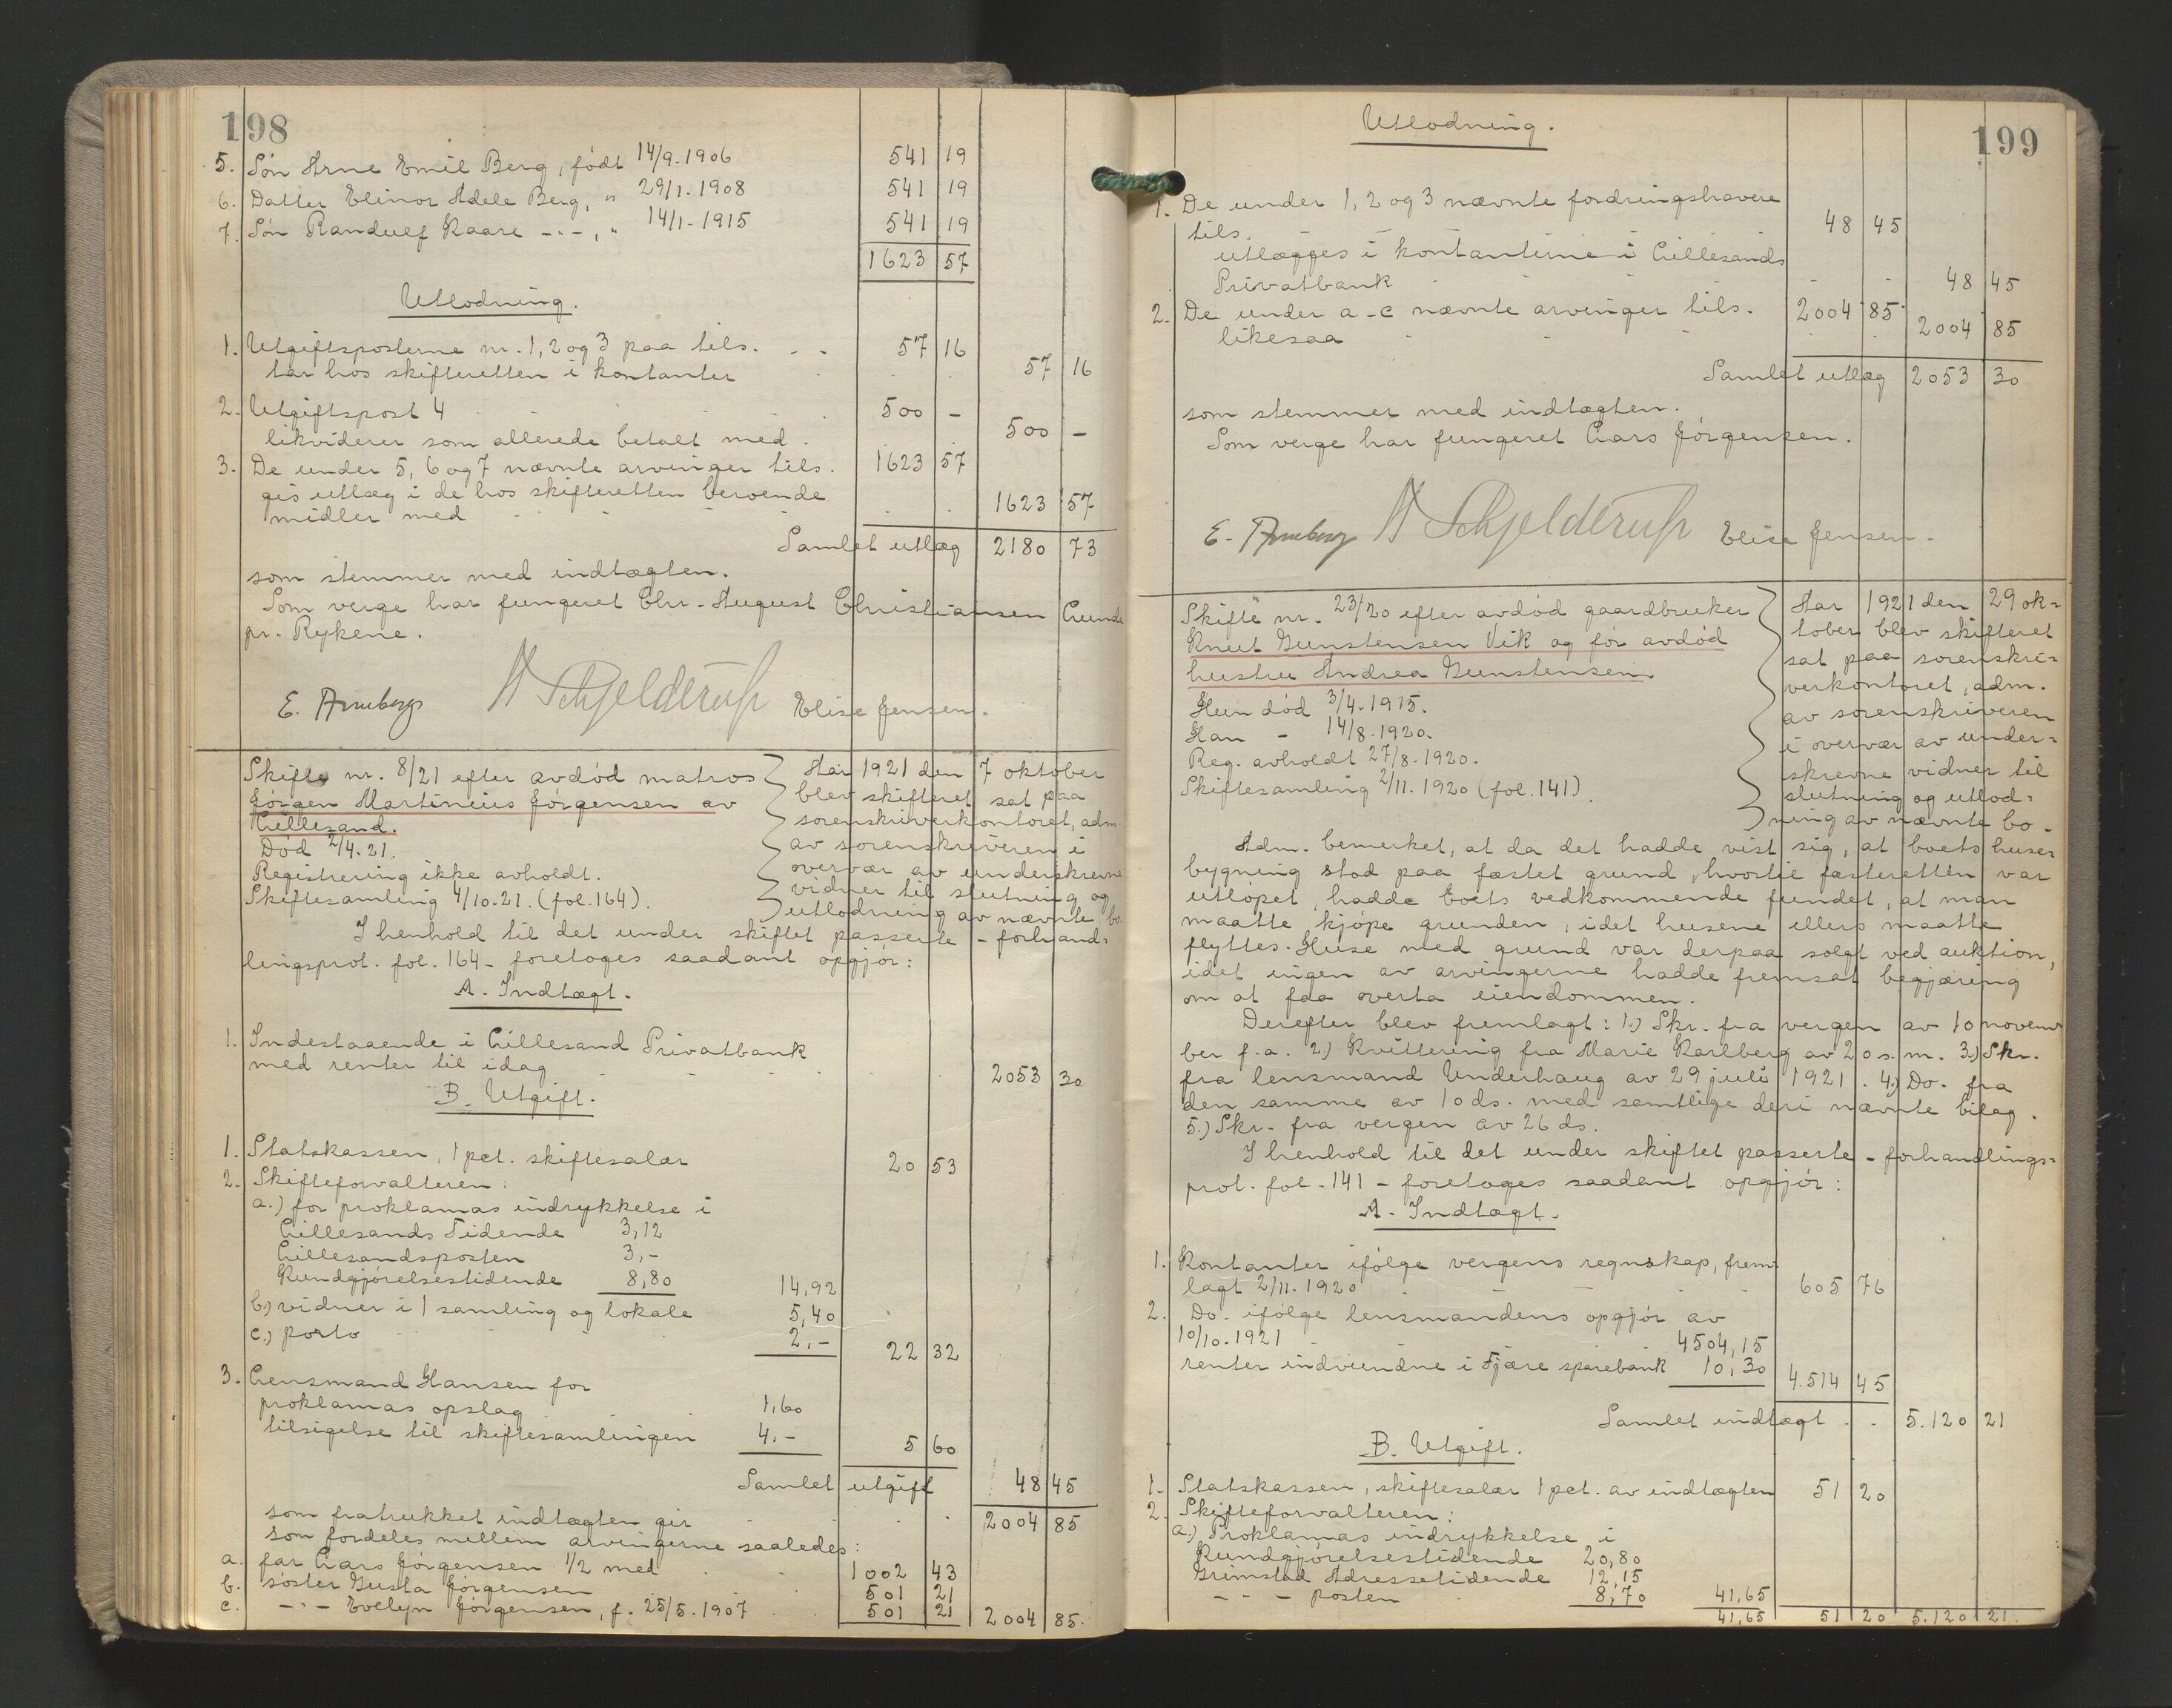 198
5. Søn Arne Emil Berg, født 14/9-1906 541 19
6. Datter Elinor Adele Berg, " 29/1-1908 541 19
7. Søn Randulf Kaare -"-, " 14/1-1915 541 19
1623 57
Utlodning.
1. Utgiftsposterne nr. 1, 2 og 3 paa tils. - - 57 16
tar hos skifteretten i kontanter 57 16
2. Utgiftspost 4 500 -
likviderer som allerede betalt med . 500 -
3. De under 5, 6 og 7 nævnte arvinger tils. 1623 57
gis utlæg i de hos skifteretten beroende
midler med 1623 57
Samlet utlæg 2180 73
som stemmer med indtægten.
Som verge har fungeret Chr. August Christiansen Lunde
pr. Rykene.
E. Arneberg A Schjelderup Elise Jensen.
Skifte nr. 8/21 efter avdød matros
Jørgen Martinius Jørgensen av
Lillesand.
Død 2/4.21.
Registrering ikke avholdt.
Skiftesamling 4/10.21. (fol.164).
Aar 1921 den 7 oktober
blev skifteret sat paa
sorenskriverkontoret, adm.
av sorenskriveren i
overvær av underskrevne
vidner til slutning og
utlodning av nævnte bo.
I henhold til det under skiftet passerte - forhand=
lingsprot. fol. 164 - foretoges saadant opgjør:
A. Indtægt.
1. Indestaaende i Lillesand Privatbank
med renter til idag 2053 30
B. Utgift.
1. Statskassen, 1 pct. skiftesalær 20 53
2. Skifteforvalteren:
a.) for proklamas indrykkelse i
Lillesands Tidende 3,12
Lillesandsposten 3,-
Kundgjørelsestidende 8,80 14,92
b.) vidner i 1 samling og lokale 5,40
c.) porto 2,- 22 32
3. Lensmand Hansen for
proklamas opslag 1,60
tilsigelse til skiftesamlingen 4.- 5 60
Samlet utgift 48 45
som fratrukket indtægten gir 2004 85
som fordeles mellem arvingerne saaledes:
a. far Lars Jørgensen 1/2 med 1002 43
b. søster Gusta Jørgensen 501 21
c. -"- Evelyn Jørgensen, f. 25/5.1907 501 21 2004 85.
199
Utlodning.
1. De under 1, 2 og 3 nævnte fordringshavere
tils. 48 45
utlægges i kontanterne i Lillesands
Privatbank 48 45
2. De under a-c nævnte arvinger tils. 2004 85
likesaa 2004 85
Samlet utlæg 2053 30
som stemmer med indtægten.
Som verge har fungeret Lars Jørgensen.
E. Arneberg A Schjelderup Elise Jensen.
Skifte nr. 23/20 efter avdød gaardbruker
Knut Gunstensen Vik og før avdød
hustru Andrea Gunstensen.
Hun død 3/4.1915.
Han - 14/8.1920.
Reg. avholdt 27/8.1920.
Skiftesamling 2/11.1920 (fol.141).
Aar 1921 den 29 ok=
tober blev skifteret
sat paa sorenskri=
verkontoret, adm.
av sorenskriveren
i overvær av under=
skrevne vidner til
slutning og utlod=
ning av nævnte bo.
Adm. bemerket, at da det hadde vist sig, at boets huser
bygning stod paa fæstet grund, hvortil fæsteretten var
utløpet, hadde boets vedkommende fundet, at man
maatte kjøpe grunden, idet husene ellers maatte
flyttes. Huse med grund var derpaa solgt ved auktion,
idet ingen av arvingerne hadde fremsat begjæring
om at faa overta eiendommen.
Derefter blev fremlagt: 1.) Skr. fra vergen av 10 novem=
ber f.a. 2.) Kvittering fra Marie Karlberg av 20 s.m. 3.) Skr.
fra lensmand Underhaug av 29 juli 1921. 4.) Do. fra
den samme av 10 ds. med samtlige deri nævnte bilag.
5.) Skr. fra vergen av 26 ds.
I henhold til det under skiftet passerte - forhandlings=
prot. fol. 141 - foretoges saadant opgjør:
A. Indtægt.
1. Kontanter ifølge vergens regnskap, frem=
lagt 2/11.1920 605 76
2. Do. ifølge lensmandens opgjør av
10/10.1921 4504,15
renter indvundne i Fjære sparebank 10,30 4.514 45
Samlet indtægt 5.120 21
B. Utgift.
1. Statskassen, skiftesalær 1 pct. av indtægten 51 20
2. Skifteforvalteren:
a.) Proklamas indrykkelse i
Kundgjørelsestidende 20,80
Grimstad Adressetidende 12,15
-"- posten 8,70 41,65
41,65 51 20 5.120 21.